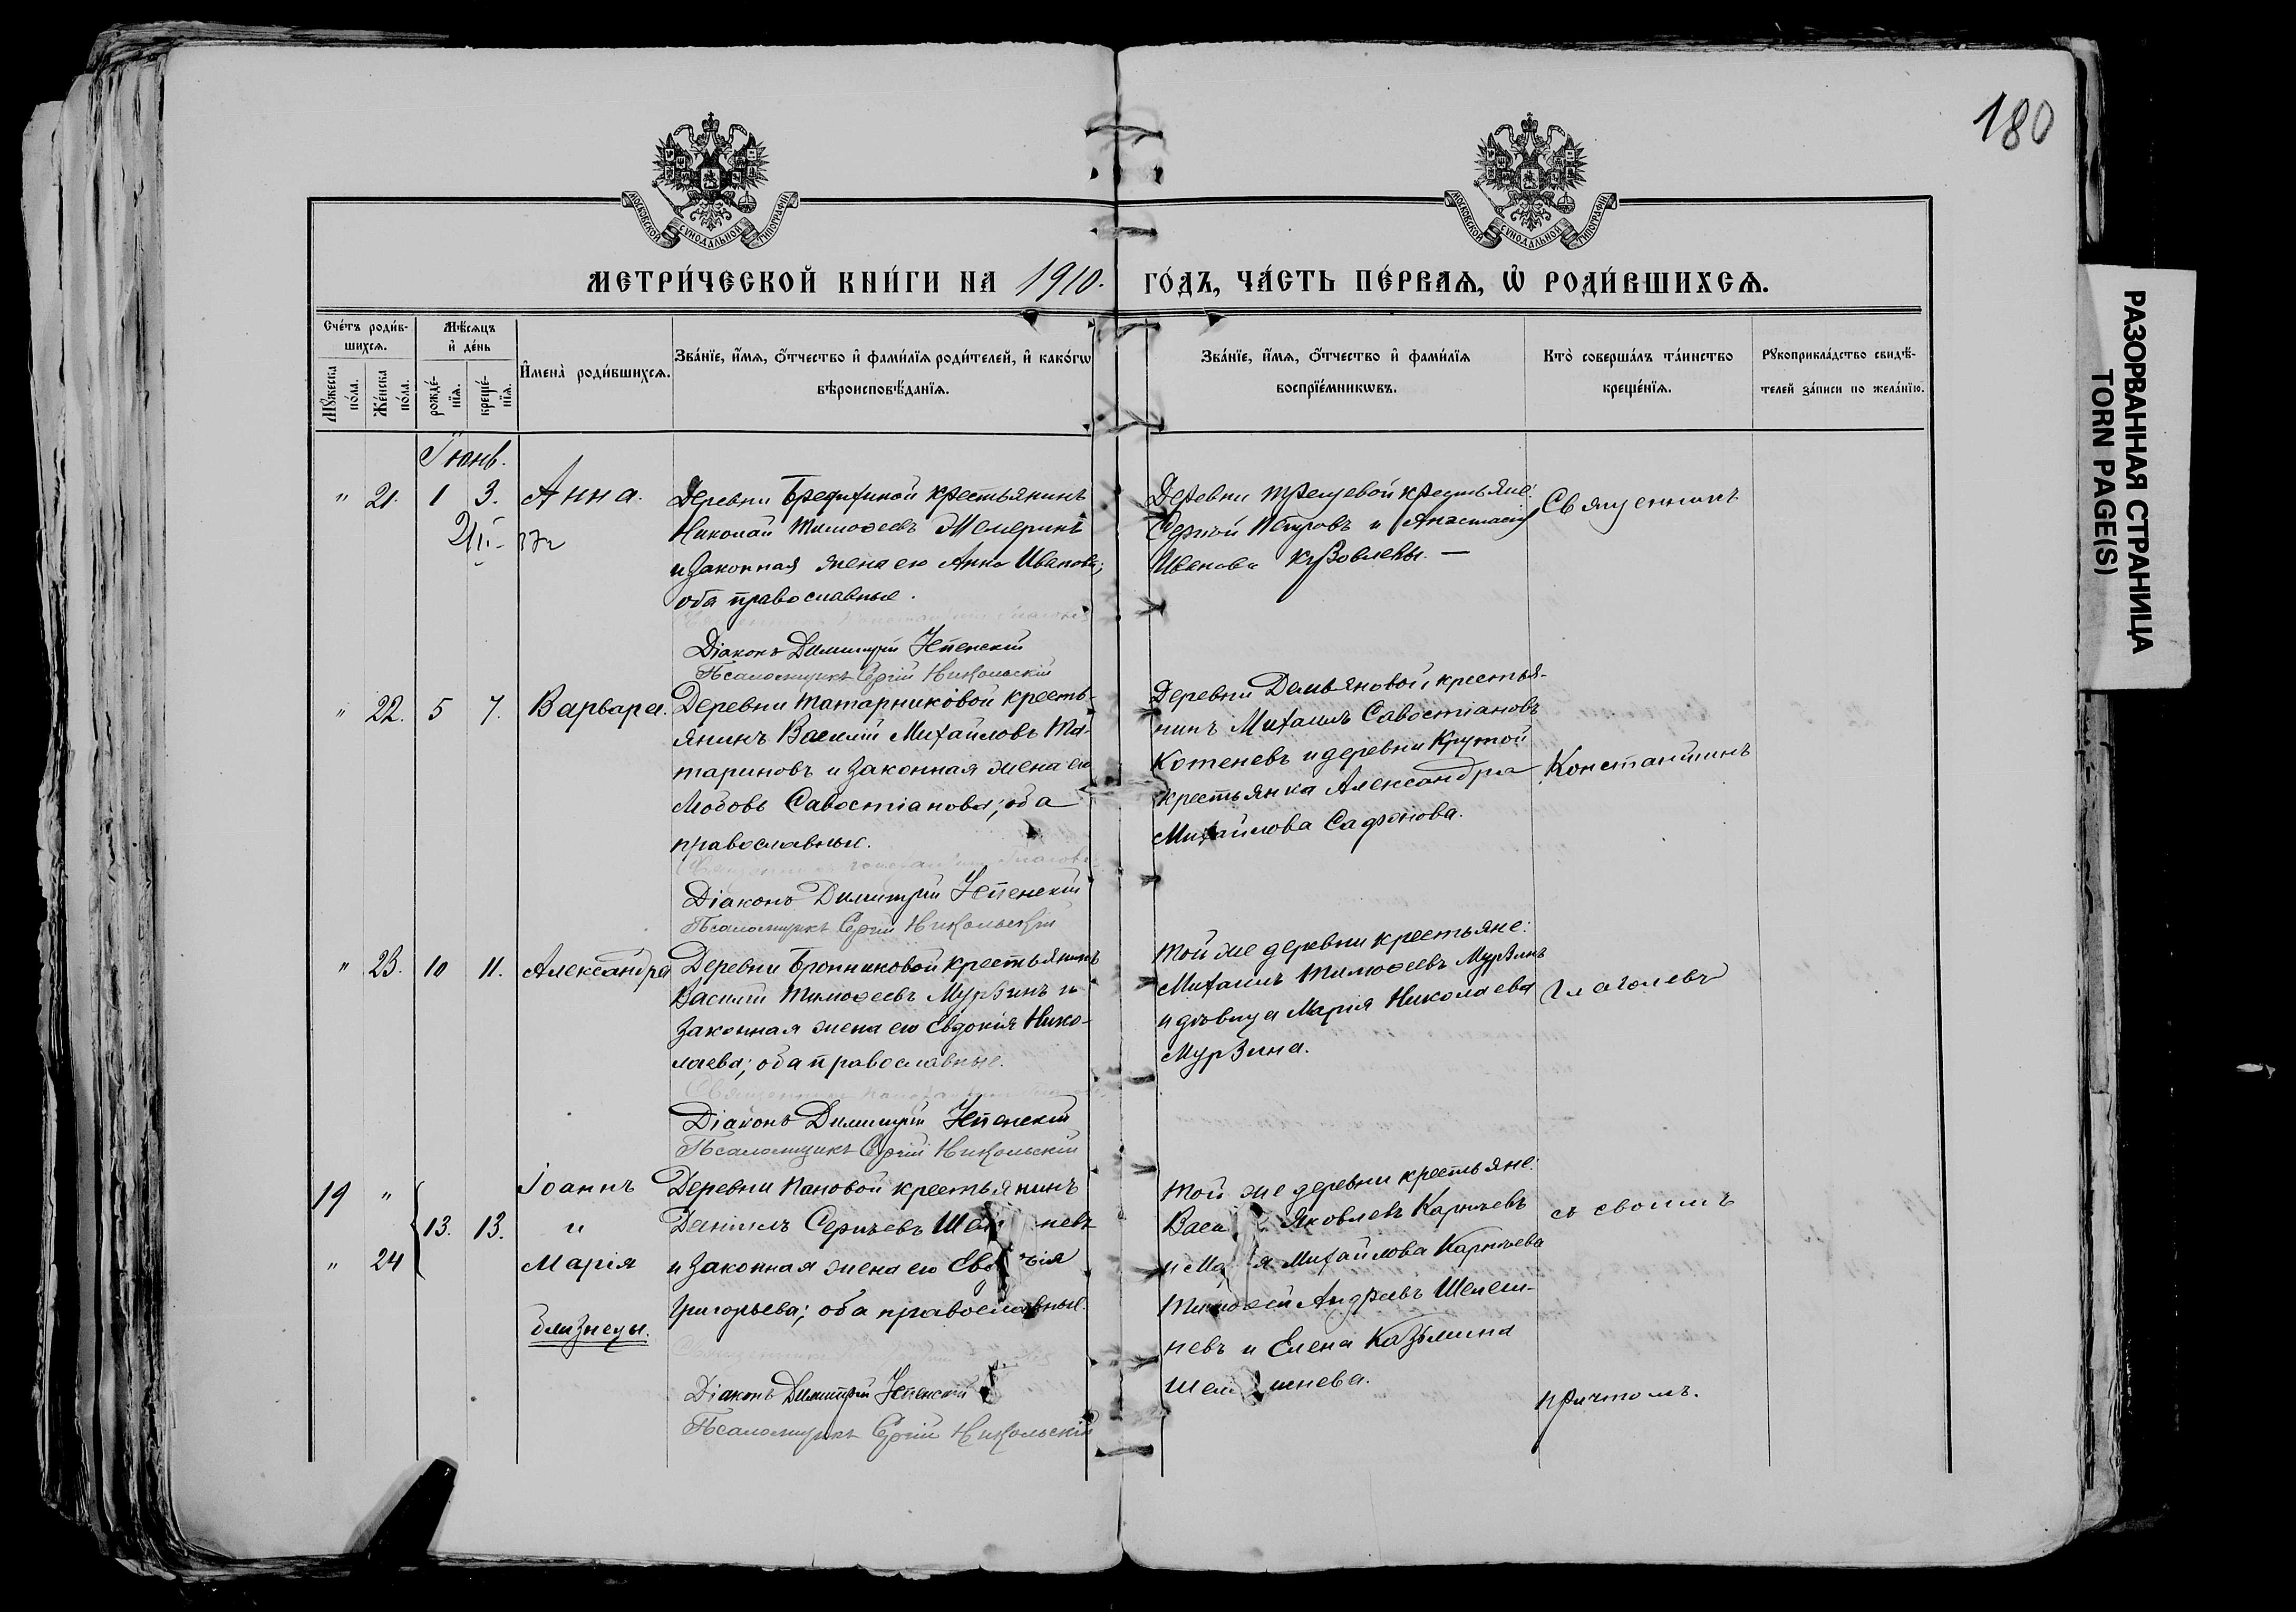 180
МОСКОВСКОЙ СѴНОДАЛЬНОЙ ТИПОГРАФІИ
МОСКОВСКОЙ СѴНОДАЛЬНОЙ ТИПОГРАФІИ
МЕТРИ́ЧЕСКОЙ КНИ́ГИ НА 1910. ГО́ДЪ, ЧА́СТЬ ПЕ́РВАѦ, Ѽ РОДИ́ВШИХСѦ.
Сче́тъ роди́в-
шихсѧ.
Мꙋ́жеска по́ла.
Же́нска по́ла.
Мѣ́сѧцъ
и҆ де́нь
рожде́-
нїѧ.
креще́-
нїѧ.
И҆мена̀ роди́вшихсѧ.
Зва́нїе, и҆́мѧ, ѻ҆́тчество и҆ фами́лїѧ роди́телей, и҆ како́гѡ
вѣроисповѣ́данїѧ.
Зва́нїе, и҆́мѧ, ѻ҆́тчество и҆ фами́лїѧ
воспрїе́мникѡвъ.
Кто̀ соверша́лъ та́инство
креще́нїѧ.
Рꙋкоприкла́дство свидѣ́-
телей за́писи по жела́нїю.
Іюнь.
" 21. 1 3. Анна.
Деревни крестьянинъ
Николай Тимоѳеевъ
и законная жена его Анна Иванова;
оба православные.
Діаконъ Димитрій Успенскій
Псаломщикъ Сергій Никольскій
Деревни крестьяне:
Сергѣй Петровъ и Анастасія
Иванова Кузовлевы. —
Священникъ
" 22. 5 7. Варвара.
Деревни Татарниковой кресть-
янинъ Василій Михайловъ Та-
тариновъ и законная жена его
Любовь Савостіанова; оба
православные.
Діаконъ Димитрій Успенскій
Псаломщикъ Сергій Никольскій
Деревни Демьяновой крестья-
нинъ Михаилъ Савостіановъ
Котеневъ и деревни Крутой
крестьянка Александра
Михайлова Сафонова.
Константинъ
" 23. 10 11. Александра
Деревни Бронниковой крестьянинъ
Василій Тимоѳеевъ Мурзинъ и
законная жена его Евдокія Нико-
лаева; оба православные.
Священникъ
Діаконъ Димитрій Успенскій
Псаломщикъ Сергій Никольскій
Той же деревни крестьяне:
Михаилъ Тимоѳеевъ Мурзинъ
и дѣвица Марія Николаева
Мурзина.
Глаголевъ
19 " Іоаннъ
13. 13. и
" 24 Марія
близнецы.
Деревни Пановой крестьянинъ
Даніилъ Сергѣевъ невъ
и законная жена его
Григорьева; оба православные.
Діаконъ Димитрій Успенскій
Псаломщикъ Сергій Никольскій
Той же деревни крестьяне:
Яковлевъ Карнѣевъ
Михайлова Карнѣева
Тимоѳей Андреевъ Шелеш-
невъ и Елена Казьмина
съ своимъ
причтомъ.
РАЗОРВАННАЯ СТРАНИЦА
TORN PAGE(S)